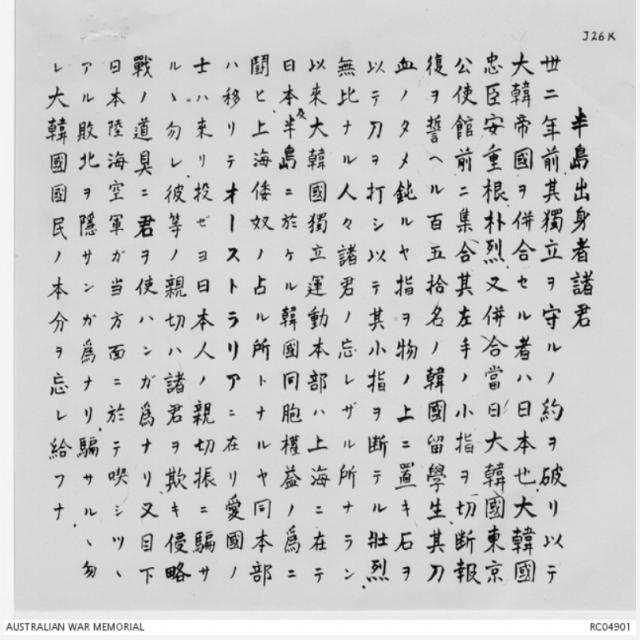 J26K
半島出身者諸君
丗二年前其獨立ヲ守ルノ約ヲ破リ以テ
大韓帝國ヲ併合セル者ハ日本也大韓國
忠臣安重根朴烈又併合當日大韓國東京
公使館前ニ集合其左手ノ小指ヲ切断報
復ヲ誓ヘル百五拾名ノ韓國留學生其刀
血ノタメ鈍ルヤ指ヲ物ノ上ニ置キ石ヲ
以テ刀ヲ打シ以テ其小指ヲ断テル壮烈
無比ナル人々諸君ノ忘レザル所ナラン
以来大韓國獨立運動本部ハ上海ニ在テ
日本及半島ニ於ケル韓國同胞權益ノ為ニ
鬪ヒ上海倭奴ノ占ル所トナルヤ同本部
ハ移リテオーストラリアニ在リ愛國ノ
士ハ来リ投ゼヨ日本人ノ親切振ニ騙サ
ルヽ勿レ彼等ノ親切ハ諸君ヲ欺キ侵略
戰ノ道具ニ君ヲ使ハンガ為ナリ又目下
日本陸海空軍ガ当方面ニ於テ喫シツヽ
アル敗北ヲ隱サンガ為ナリ騙サルヽ勿
レ大韓國國民ノ本分ヲ忘レ給フナ
AUSTRALIAN WAR MEMORIAL
RC04901